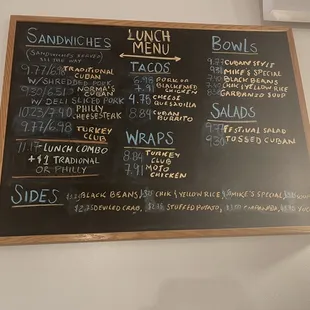 SANDWICHES
(SANDWICHES SERVED
ALL THE WAY)
9.77/6.98 TRADITIONAL
CUBAN
W/SHREDDED PORK
9.30/6.51 NORMA'S
CUBAN
W/ DELI SLICED PORK
10.23/7.40 PHILLY
CHEESESTEAK
9.77/6.98 TURKEY
CLUB
11.17 LUNCH COMBO
+$1 TRADIONAL
OR PHILLY
LUNCH
MENU
TACOS
6.98 PORK OR
7.91 BLACKENED
CHICKEN
4.78 CHEESE
QUESADILLA
8.84 CUBAN
BURRITO
WRAPS
8.84 TURKEY
CLUB
7.91 MOJO
CHICKEN
BOWLS
CUBAN STYLE
MIKE'S SPECIAL
BLACK BEANS
CHIK & YELLOW RICE
GARBANZO SOUP
SALADS
9.77 FESTIVAL SALAD
9.30 TOSSED CUBAN
SIDES
BLACK BEANS CHIK & YELLOW RICE MIKE'S SPECIAL
DEVILED CRAB, STUFFED POTATO, EMPANADA